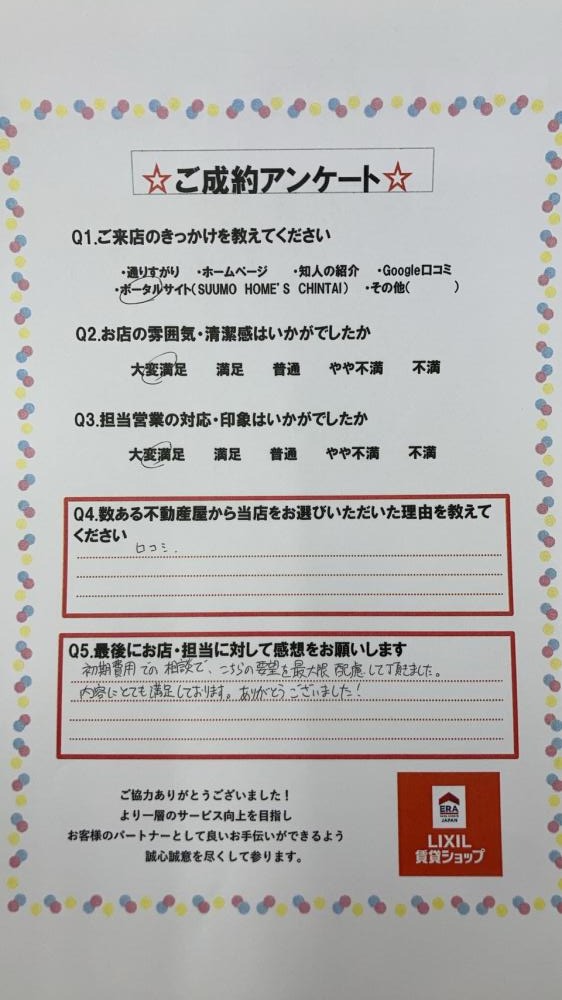 ☆ご成約アンケート☆
Q1.ご来店のきっかけを教えてください
・通りすがり ・ホームページ ・知人の紹介 ・Google口コミ
・ポータルサイト(SUUMO HOME'S CHINTAI) ・その他( )
Q2.お店の雰囲気・清潔感はいかがでしたか
大変満足 満足 普通 やや不満 不満
Q3.担当営業の対応・印象はいかがでしたか
大変満足 満足 普通 やや不満 不満
Q4.数ある不動産屋から当店をお選びいただいた理由を教えて
ください
口コミ.
Q5.最後にお店・担当に対して感想をお願いします
初期費用での相談で、こちらの要望を最大限配慮して頂きました。
内容にとても満足しております。ありがとうございました!
ご協力ありがとうございました！
より一層のサービス向上を目指し
お客様のパートナーとして良いお手伝いができるよう
誠心誠意を尽くして参ります。
ERA
JAPAN
LIXIL
賃貸ショップ